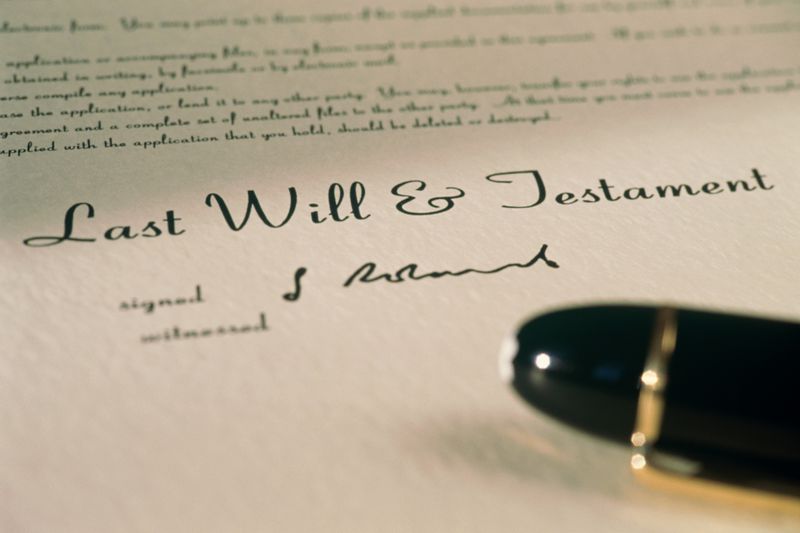 electronic form. You may print up to three copies of the supplied
application or accompanying files, in any form, except as provided in this agreement. If you wish to
obtained in writing, by facsimile or by electronic mail.
erse compile any application.
ase the application, or lend it to any other party. You may, however, transfer your rights to use the application
greement and a complete set of unaltered files to the other party. At that time you must cease to use the
upplied with the application that you hold, should be deleted or destroyed.
Last Will & Testament
signed
witnessed